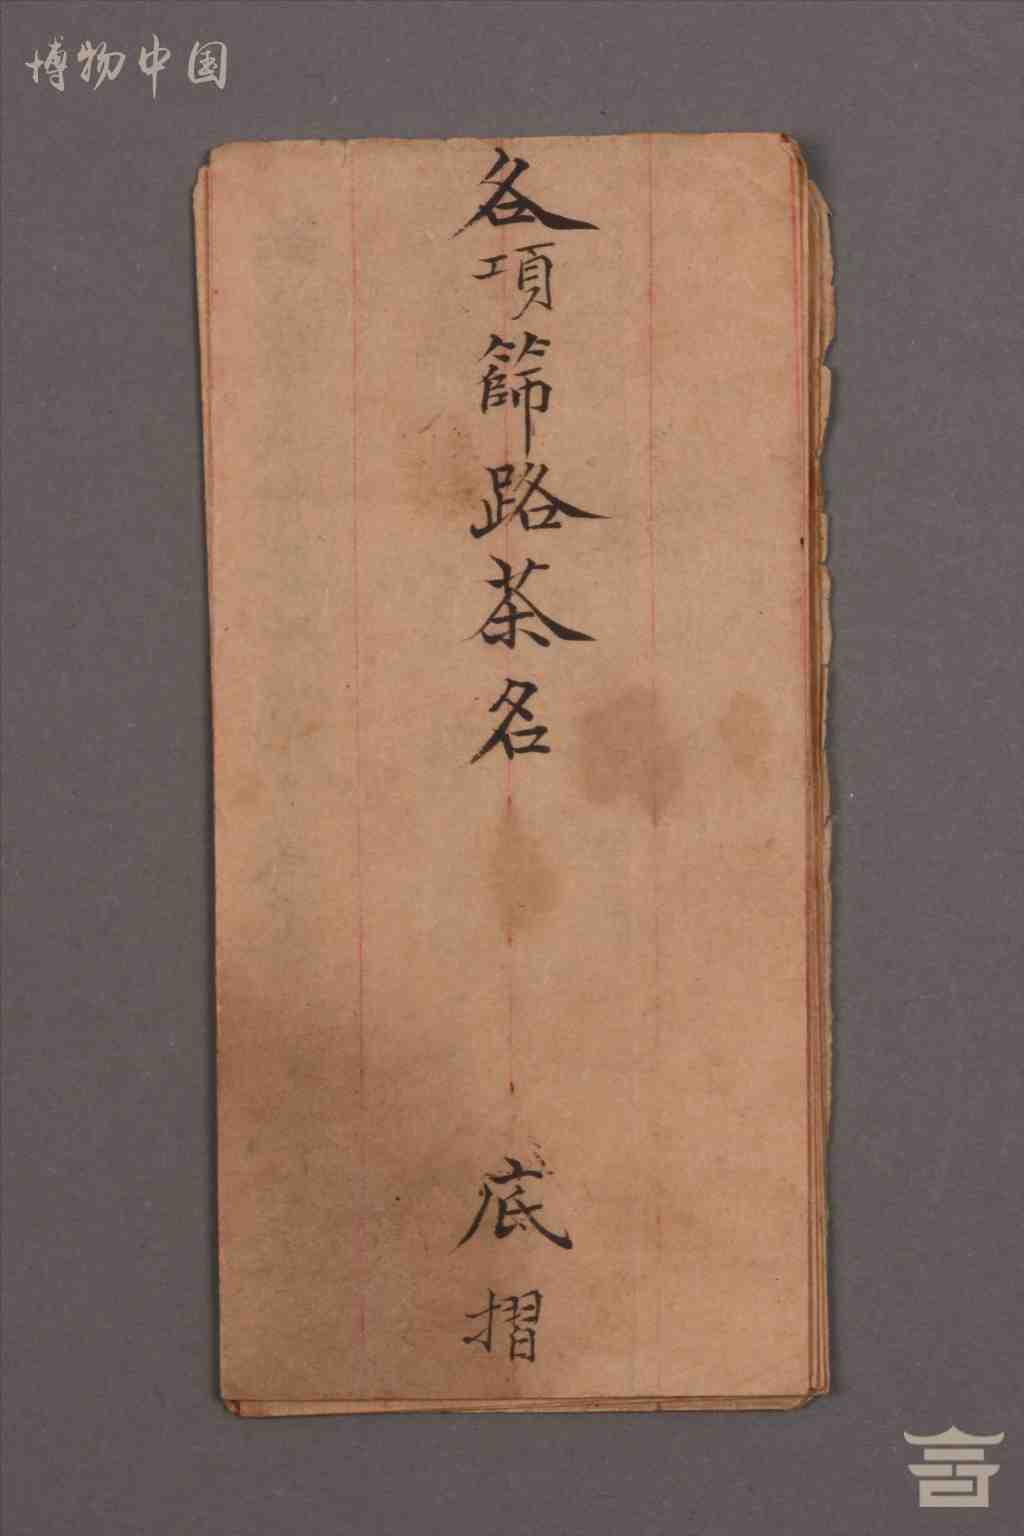 博物中国
各項篩路茶名
底摺